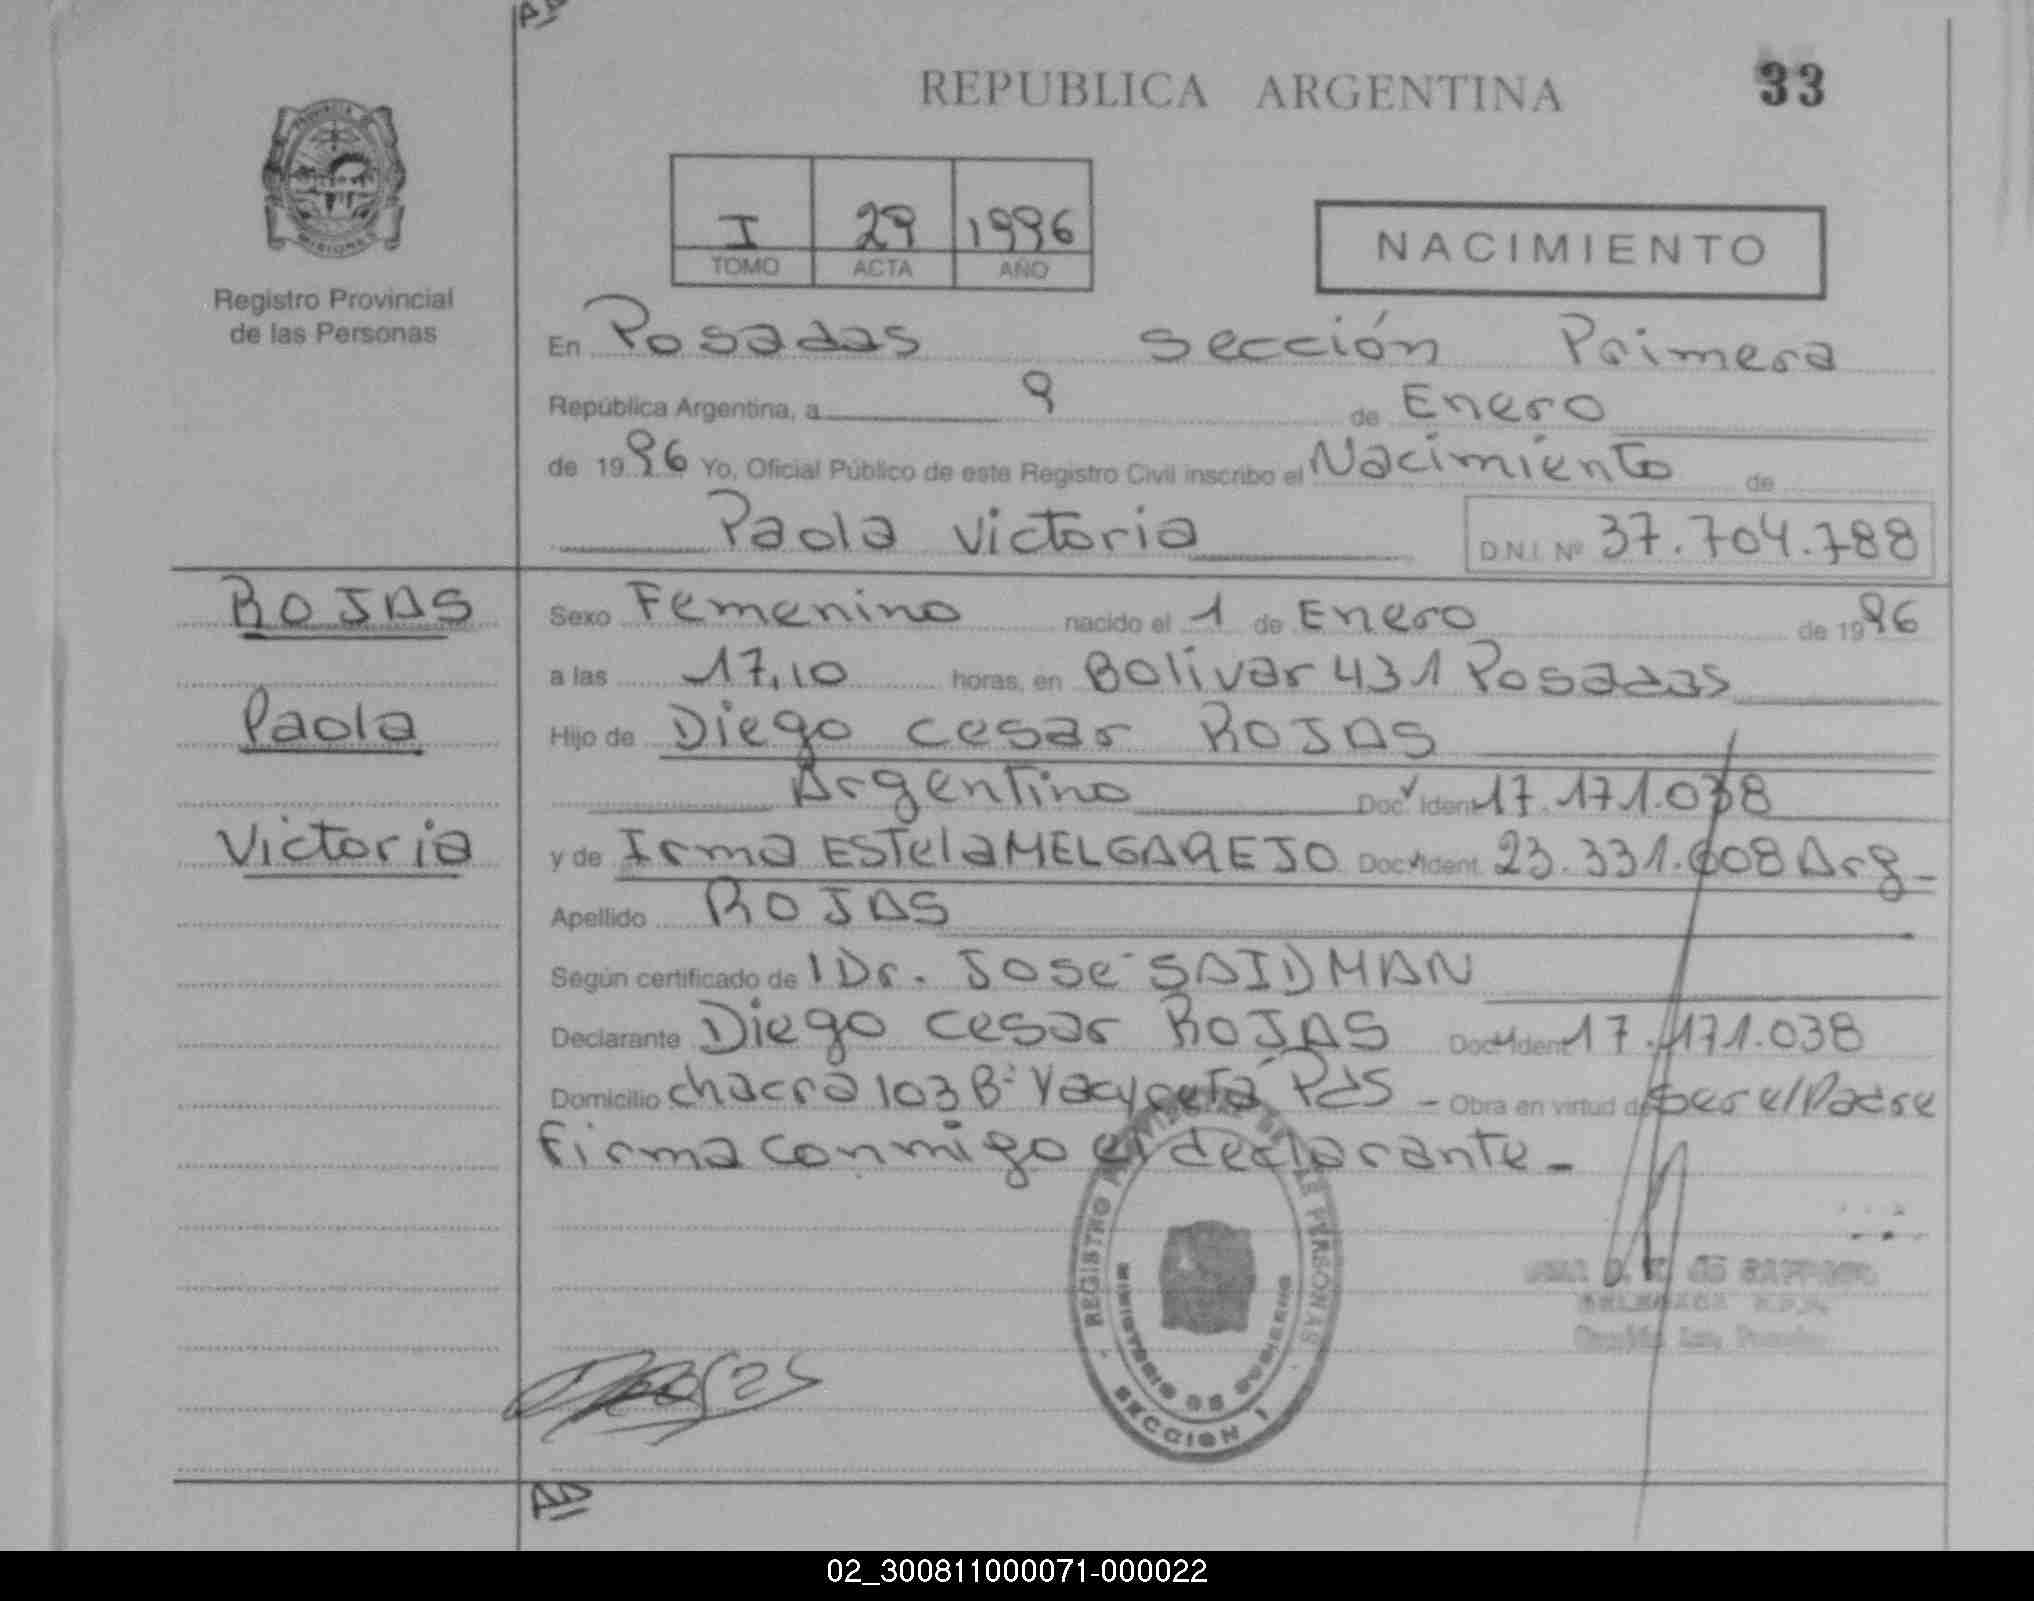 REPUBLICA ARGENTINA 33
PROVINCIA
MISIONES
Registro Provincial
de las Personas
I 29 1996
TOMO ACTA AÑO
NACIMIENTO
En Posadas sección Primera
República Argentina, a 9 de Enero
de 1996 Yo, Oficial Público de este Registro Civil inscribo el Nacimiento de
Paola Victoria D.N.I. Nº 37.704.788
ROJAS
Paola
Victoria
Sexo Femenino nacido el 1 de Enero de 1996
a las 17,10 horas, en Bolivar 431 Posadas
Hijo de Diego Cesar ROJAS
Argentino Doc. Ident 17.171.038
y de Irma Estela MELGAREJO Doc. Ident. 23.331.608 Arg_
Apellido ROJAS
Según certificado de l Dr. Jose SAIDMAN
Declarante Diego Cesar ROJAS Doc. Ident 17.171.038
Domicilio chacra 103 Bº Yacyreta Pdas - Obra en virtud de ser el Padre
Firma conmigo el declarante_
REGISTRO PROVINCIAL DE LAS PERSONAS
MINISTERIO DE GOBIERNO
SECCION I
AD
02_300811000071-000022